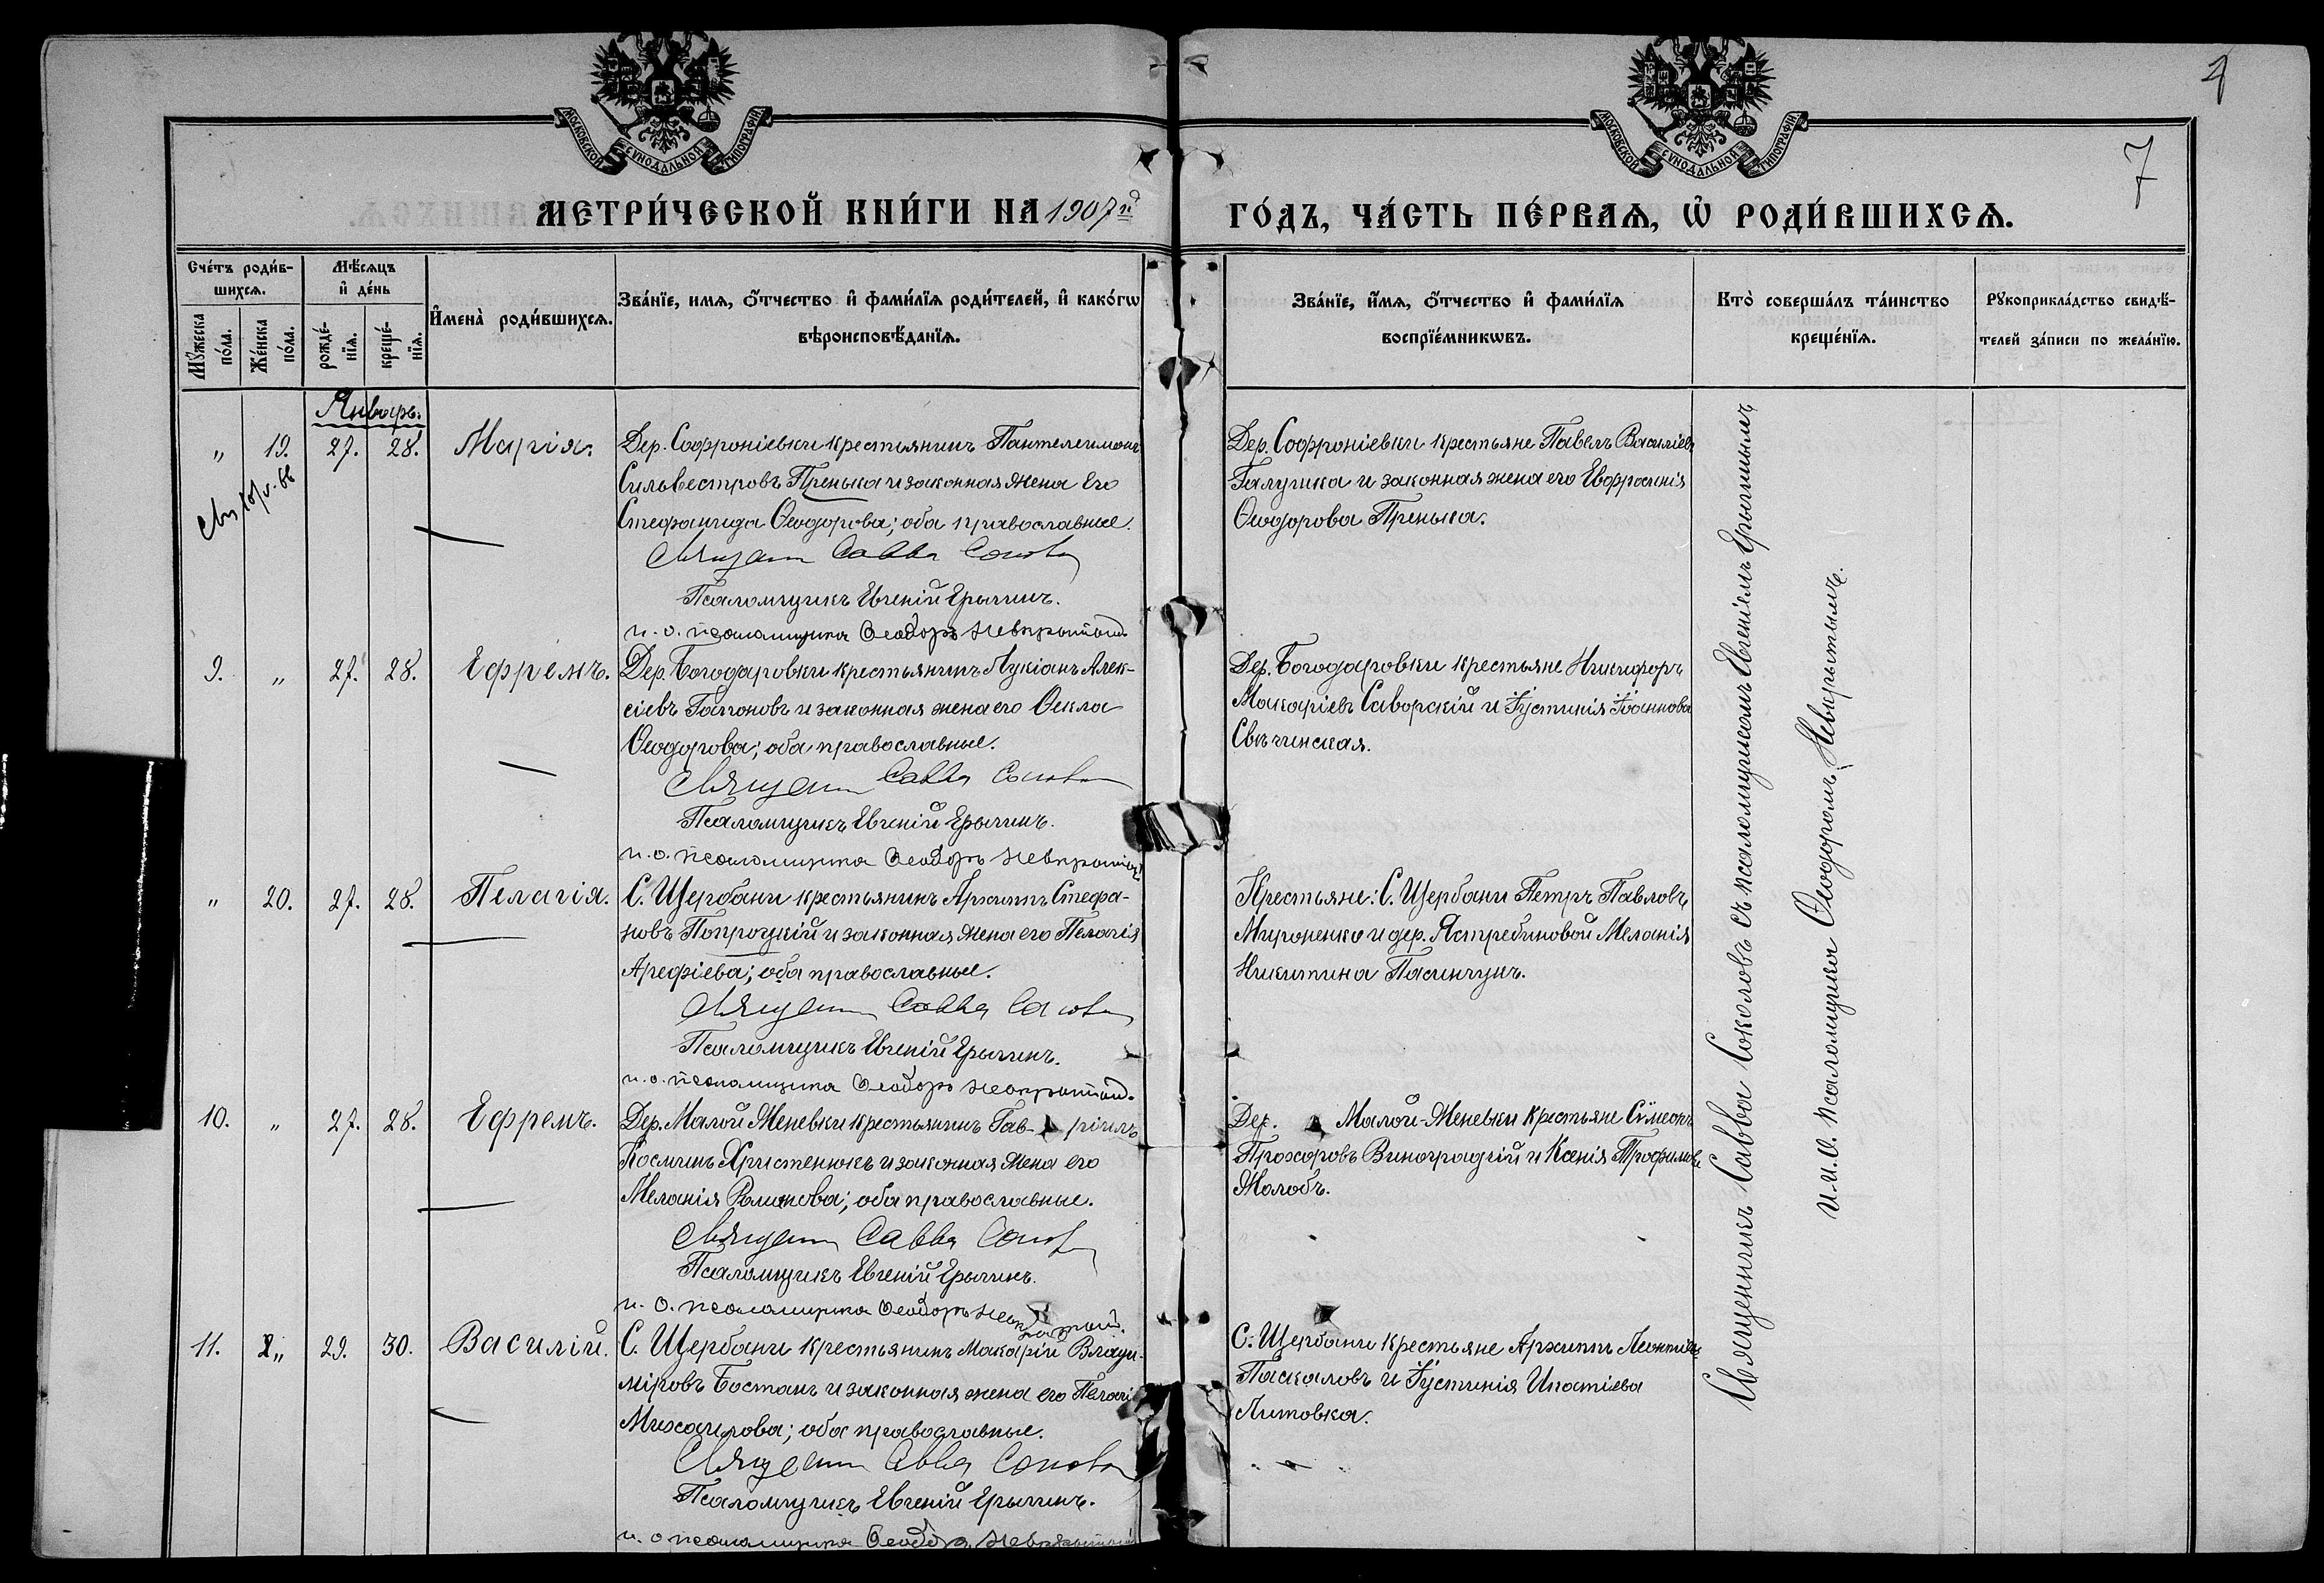 4
7
МОСКОВСКОЙ СУНОДАЛЬНОЙ ТИПОГРАФІИ
МОСКОВСКОЙ СУНОДАЛЬНОЙ ТИПОГРАФІИ
МЕТРИ́ЧЕСКОЙ КНИ́ГИ НА 1907й ГО́ДЪ, ЧА́СТЬ ПЕ́РВАѦ, Ѡ҆ РОДИ́ВШИХСѦ.
Сче́тъ роди́в-
шихсѧ.
Мꙋ́жеска
по́ла.
Же́нска
по́ла.
Мѣ́сѧцъ
и҆ де́нь
рожде́-
нїѧ.
креще́-
нїѧ.
И҆мена̀ роди́вшихсѧ.
Зва́нїе, имѧ, ѻ҆́тчество и҆ фами́лїѧ роди́телей, и҆ како́гѡ
вѣроисповѣ́данїѧ.
Зва́нїе, и҆́мѧ, ѻ҆́тчество и҆ фами́лїѧ
воспрїе́мникѡвъ.
Кто̀ соверша́лъ та́инство
креще́нїѧ.
Рꙋкоприкла́дство свидѣ́-
телей за́писи по жела́нїю.
Январь.
„ 19. 27. 28. Марія.
Дер. Софроніевки крестьянинъ Пантелеимонъ
Сильвестровъ Пренька и законная жена его
Стефанида Ѳеодорова; оба православные.
Священ Савва Соколов
Псаломщикъ Евгеній Ерыгинъ.
и. о. псаломщика Ѳеодоръ Невкрытый
Дер. Софроніевки крестьяне Павелъ Василіевъ
Галушка и законная жена его Евфросинія
Ѳеодорова Пренька.
9. „ 27. 28. Ефремъ.
Дер. Богодаровки крестьянинъ Лукіанъ Алек-
сіевъ Гапоновъ и законная жена его Ѳекла
Ѳеодорова; оба православные.
Священ Савва Соколов
Псаломщикъ Евгеній Ерыгинъ.
и. о. псаломщика Ѳеодоръ Невкрытый
Дер. Богодаровки крестьяне Никифоръ
Макаріевъ Саворскій и Іустинія Іоаннова
Свѣчинская.
„ 20. 27. 28. Пелагія.
С. Щербани крестьянинъ Архиппъ Стефа-
новъ Попроцкій и законная жена его Пелагія
Арефіева; оба православные.
Священ Савва Соколов
Псаломщикъ Евгеній Ерыгинъ.
и. о. псаломщика Ѳеодоръ Невкрытый.
Крестьяне: С. Щербани Петръ Павловъ
Мироненко и дер. Ястребиновой Меланія
Никитина Пасинчукъ.
10. „ 27. 28. Ефремъ.
Дер. Малой Женевки крестьянинъ Гав-ріилъ
Косминъ Христенюкъ и законная жена его
Меланія Романова; оба православные.
Священ Савва Соколов
Псаломщикъ Евгеній Ерыгинъ.
и. о. псаломщика Ѳеодоръ Невкрытый.
Дер. Малой-Женевки крестьяне Сѵмеонъ
Прохоровъ Виноградгій и Ксенія Трофимова
Жолобъ.
11. „ 29. 30. Василій.
С. Щербани крестьянинъ Макарій Влади-
міровъ Бостанъ и законная жена его Пелагія
Михаилова; оба православные.
Священ Савва Соколов
Псаломщикъ Евгеній Ерыгинъ.
и. о псаломщика Ѳеодоръ Невкрытый
С. Щербани крестьяне Архиппъ Леонтіевъ
Паскаловъ и Іустинія Ипатіева
Литовка.
Священникъ Савва Соколовъ съ псаломщикомъ Евгеніемъ Ерыгинымъ
и и. о. псаломщика Ѳеодоромъ Невкрытымъ.